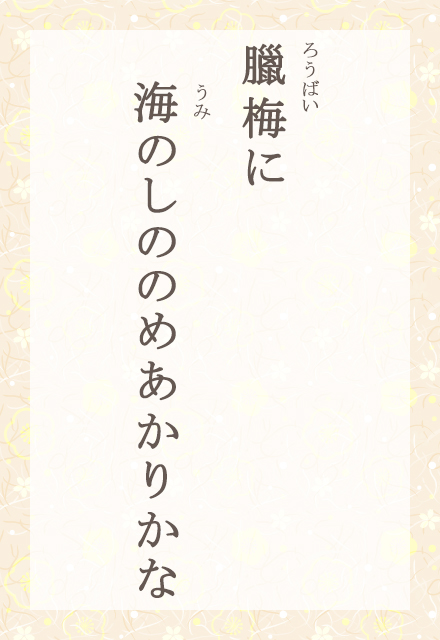 ろうばい
臘梅に
うみ
海のしののめあかりかな